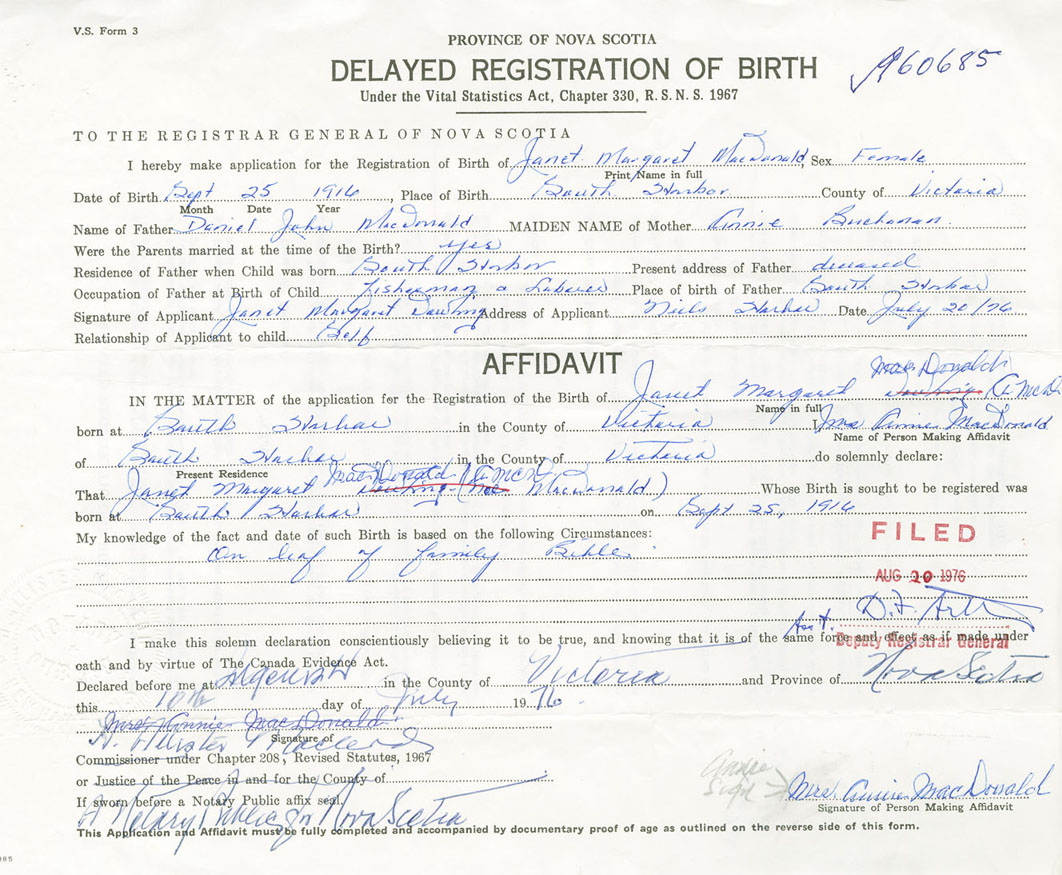 V.S. Form 3
PROVINCE OF NOVA SCOTIA
960685
DELAYED REGISTRATION OF BIRTH
Under the Vital Statistics Act, Chapter 330, R.S.N.S. 1967
TO THE REGISTRAR GENERAL OF NOVA SCOTIA
I hereby make application for the Registration of Birth of Janet Margaret MacDonald, Sex Female
Print Name in full
Date of Birth Sept 25 1916, Place of Birth South Harbor County of Victoria
Month Date Year
Name of Father Daniel John MacDonald MAIDEN NAME of Mother Annie Buchanan.
Were the Parents married at the time of the Birth? yes
Residence of Father when Child was born South Harbor Present address of Father deceased
Occupation of Father at Birth of Child Fisherman & Laborer Place of birth of Father South Harbor
Signature of Applicant Janet Margaret Dowling Address of Applicant Neils Harbor Date July 20/76
Relationship of Applicant to child Self
AFFIDAVIT
MacDonald
IN THE MATTER of the application for the Registration of the Birth of Janet Margaret Dowling
Name in full
born at South Harbor in the County of Victoria I, Mrs Annie MacDonald
Name of Person Making Affidavit
of South Harbor in the County of Victoria do solemnly declare:
Present Residence
MacDonald
That Janet Margaret Dowling (nee MacDonald) Whose Birth is sought to be registered was
born at South Harbor on Sept 25, 1916
My knowledge of the fact and date of such Birth is based on the following Circumstances:
On leaf of family Bible.
FILED
AUG 20 1976
Deputy Registrar General
I make this solemn declaration conscientiously believing it to be true, and knowing that it is of the same force and effect as if made under
oath and by virtue of The Canada Evidence Act.
Declared before me at in the County of Victoria and Province of Nova Scotia
this day of July 19 76.
Mrs. Annie MacDonald
Signature of
Commissioner under Chapter 208, Revised Statutes, 1967
or Justice of the Peace in and for the County of
If sworn before a Notary Public affix seal.
A Notary Public for Nova Scotia
Annie
Sign
Mrs. Annie MacDonald
Signature of Person Making Affidavit
This Application and Affidavit must be fully completed and accompanied by documentary proof of age as outlined on the reverse side of this form.